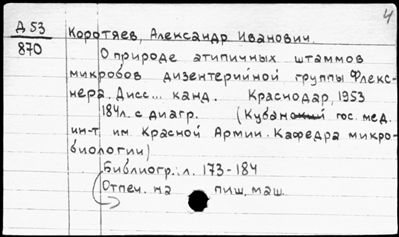 4
Д 53
870
Коротяев, Александр Иванович.
О природе атипичных штаммов
микробов дизентерийной группы Флекс-
нера. Дисс... канд. Краснодар, 1953
184л. с диагр. (Кубанский гос. мед.
ин-т им. Красной Армии. Кафедра микро-
биологии)
Библиогр.: л. 173-184
Отпеч. на пиш. маш.